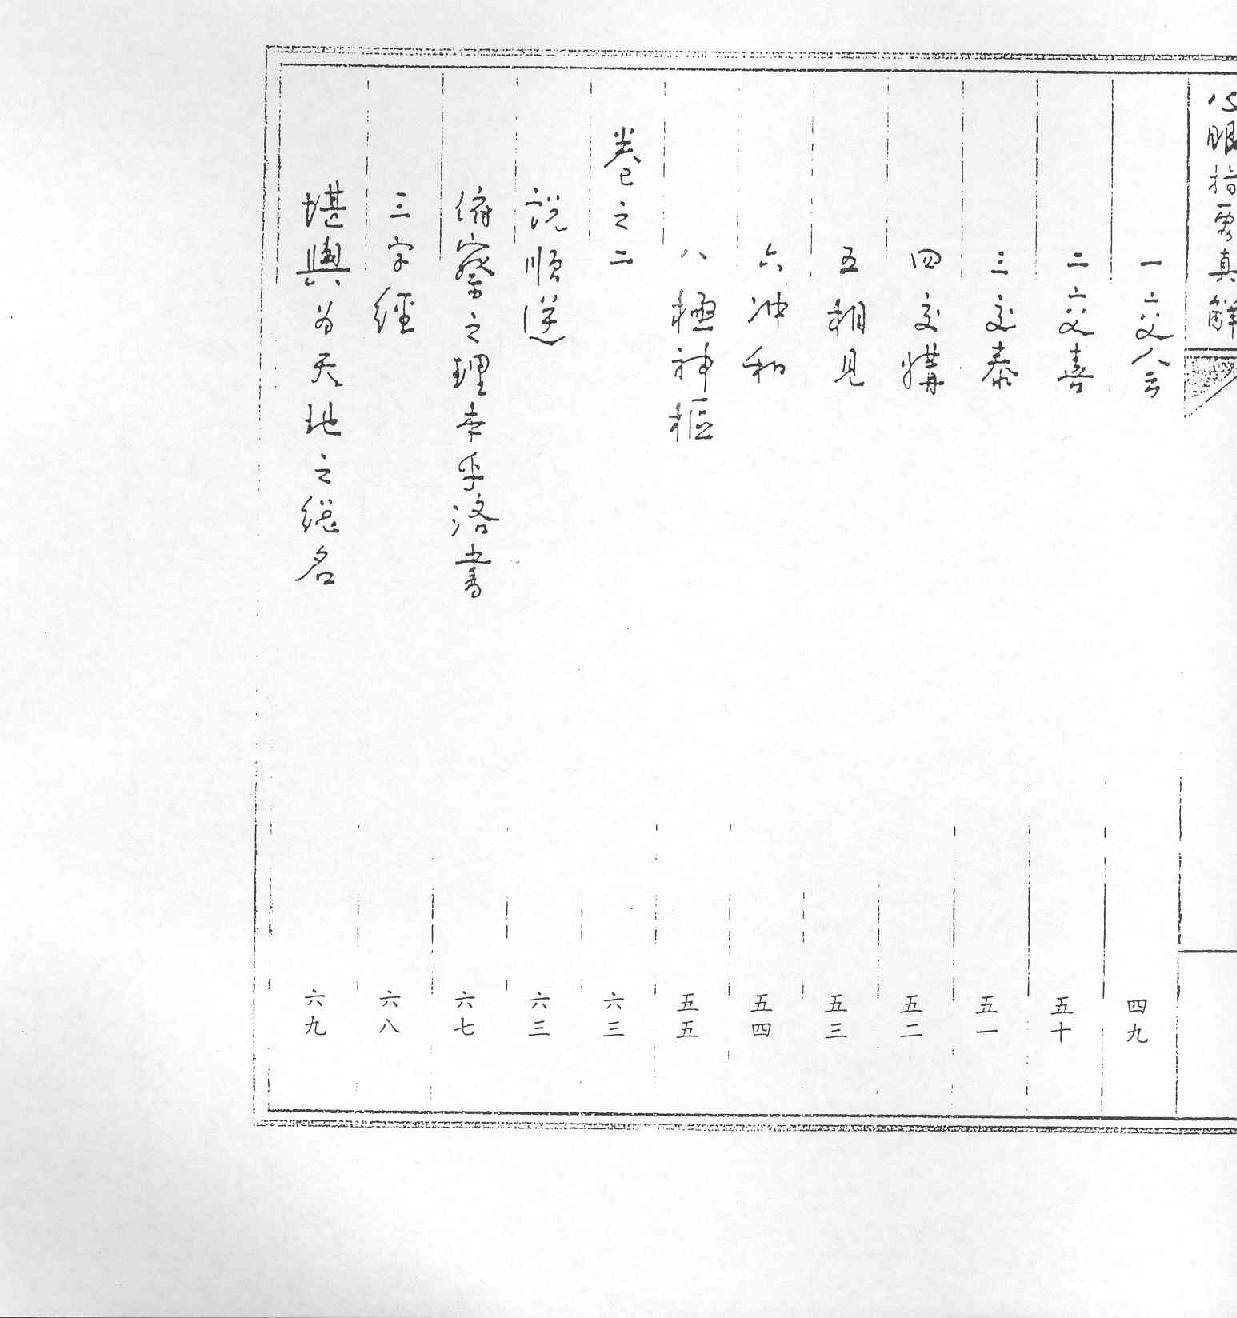 心眼指要真解
一交会 四九
二交喜 五十
三交泰 五一
四交媾 五二
五相見 五三
六冲和 五四
八極神樞 五五
卷之二 六三
說順逆 六三
俯察之理本乎洛書 六七
三字經 六八
堪輿为天地之總名 六九